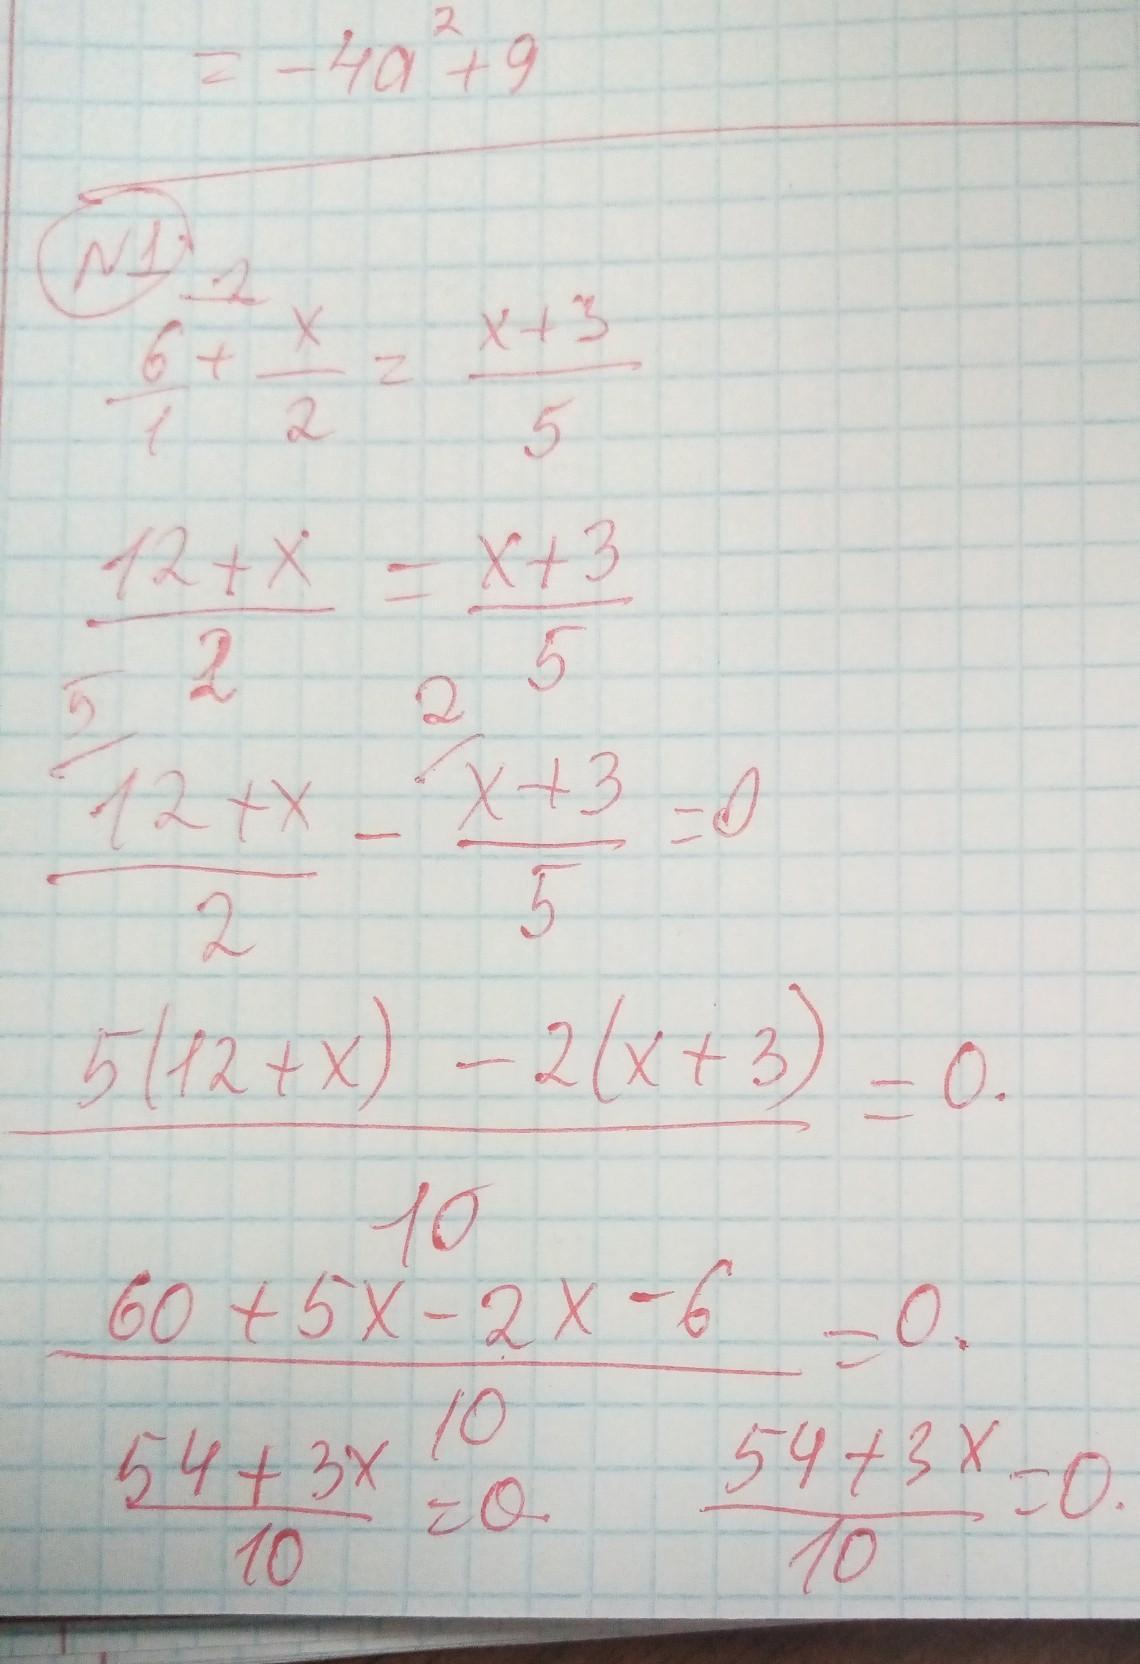 = -4a² + 9
N1.
6/1 + x/2 = (x+3)/5
(12+x)/2 = (x+3)/5
(12+x)/2 - (x+3)/5 = 0
(5(12+x) - 2(x+3))/10 = 0.
(60+5x-2x-6)/10 = 0.
(54+3x)/10 = 0. (54+3x)/10 = 0.